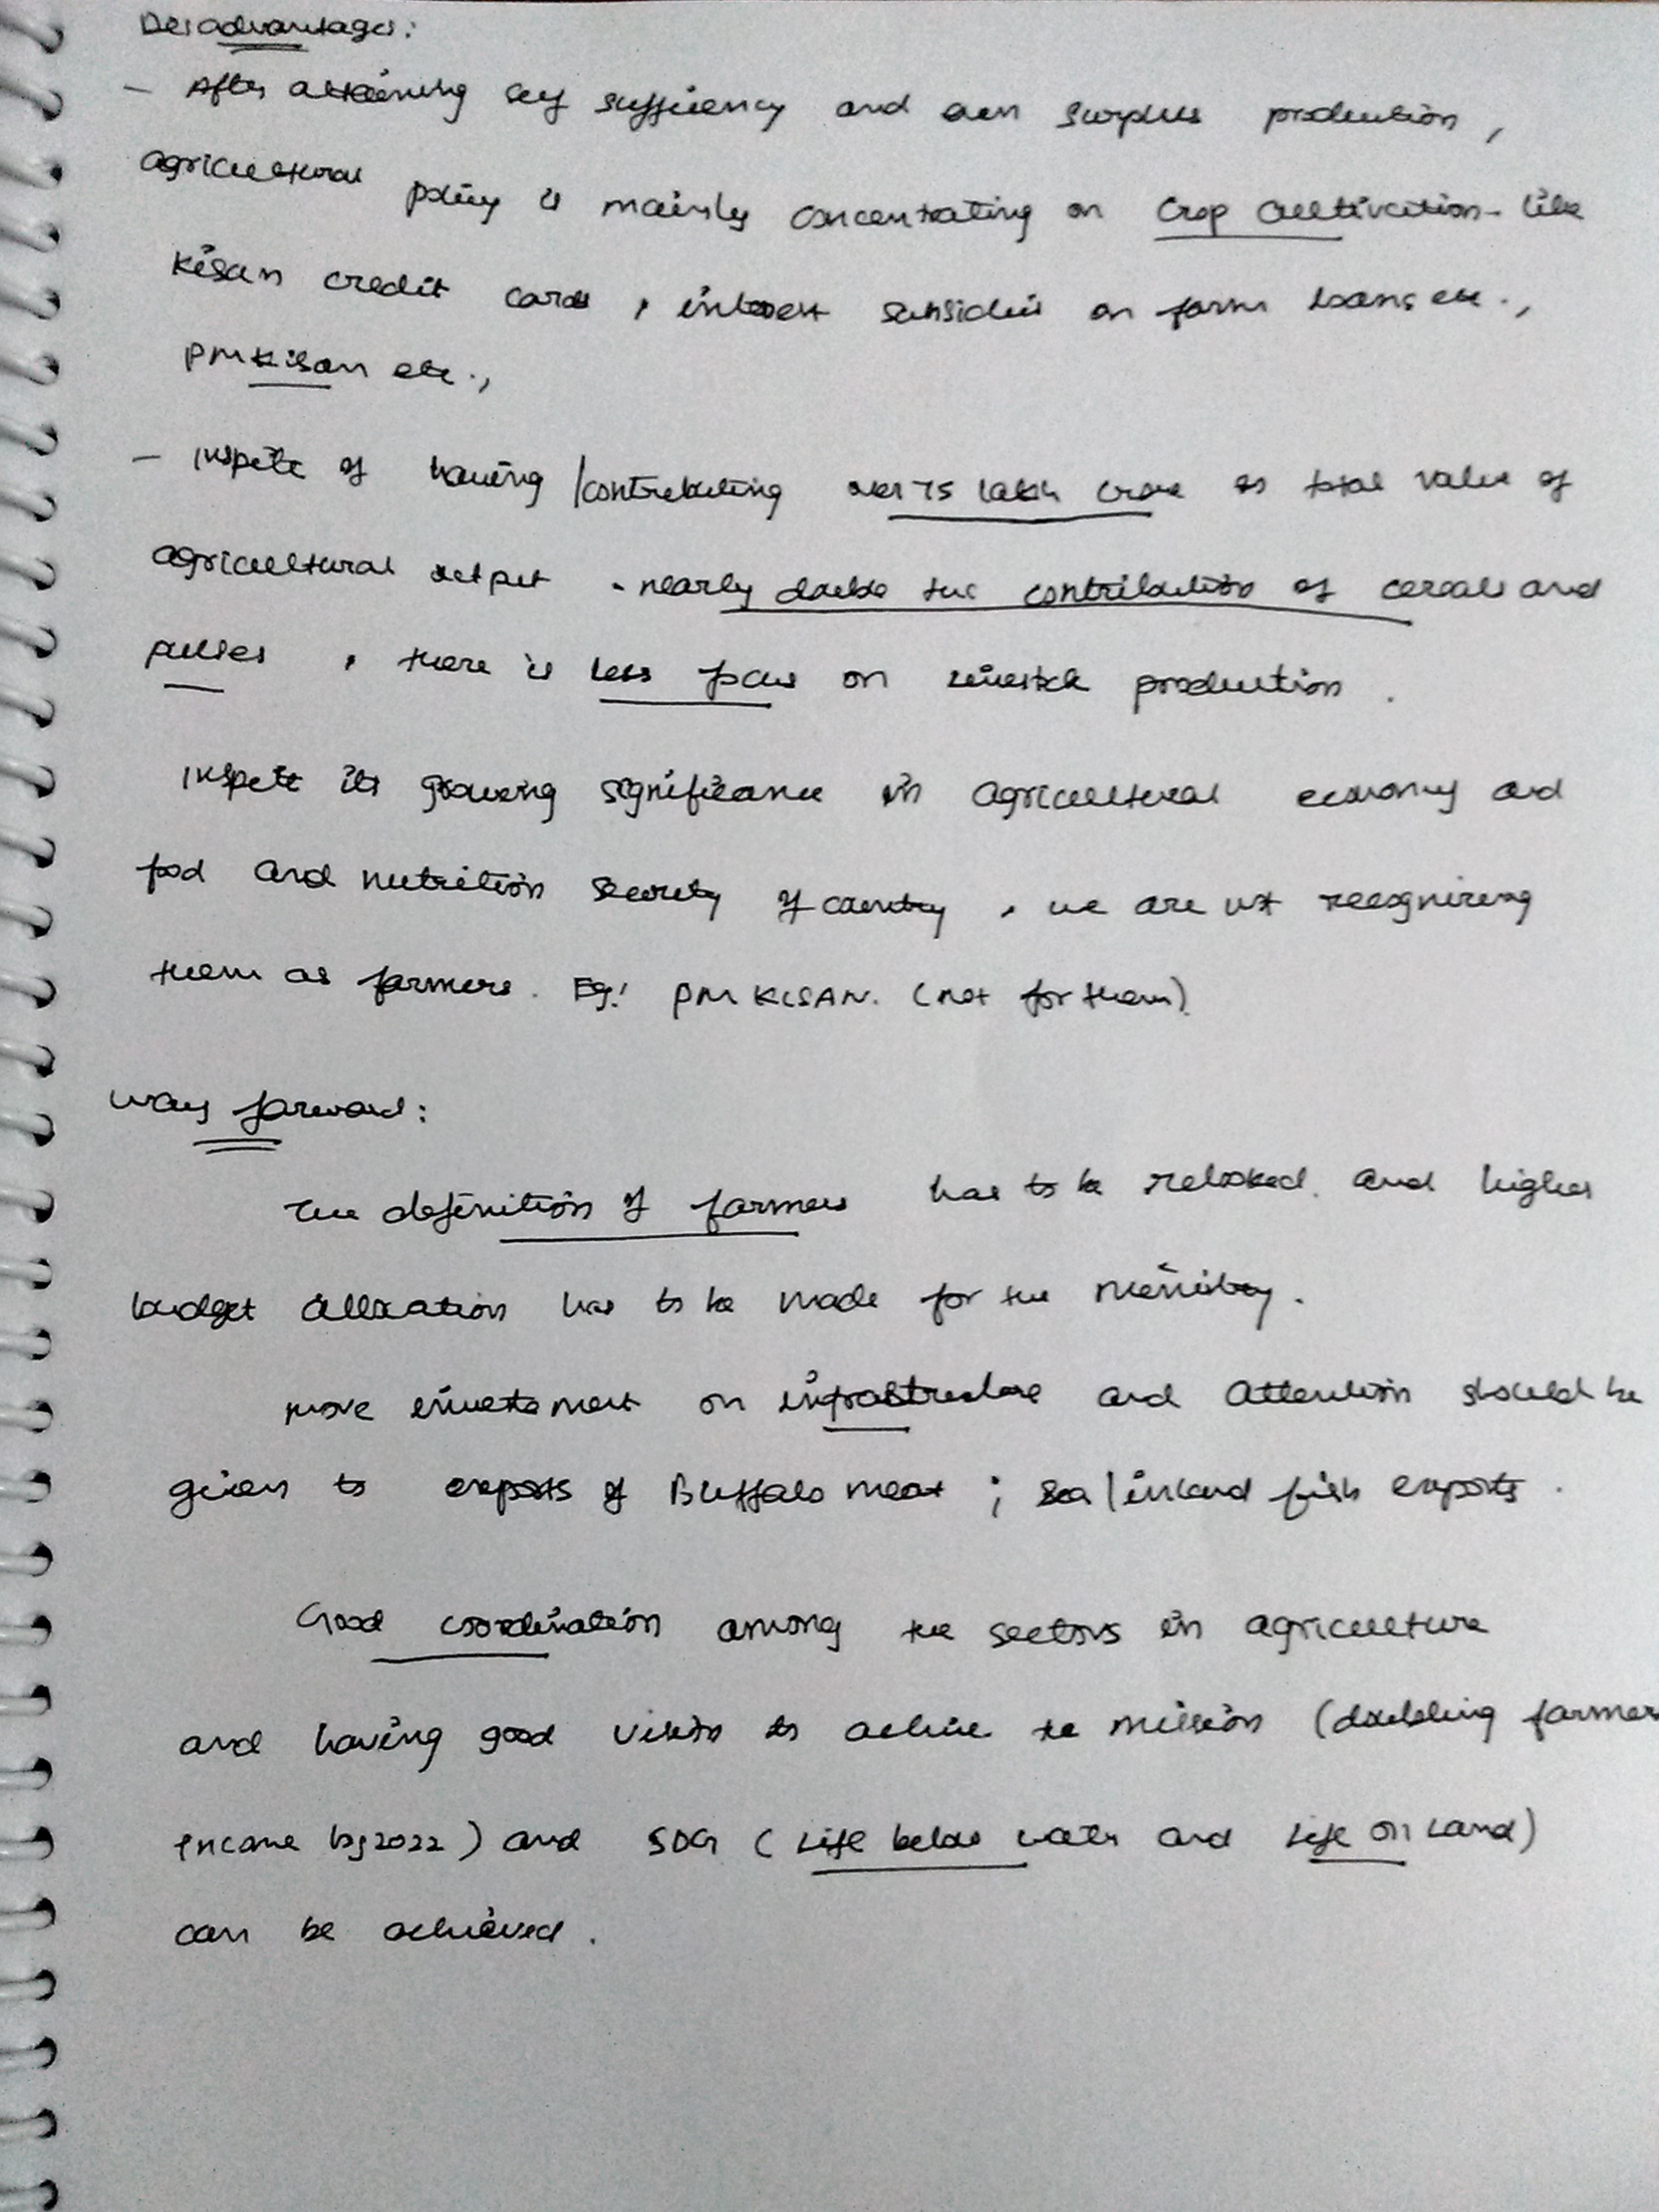 Disadvantages:
- After attaining self sufficiency and even surplus production,
agricultural policy is mainly concentrating on crop cultivation - like
Kisan credit cards, interest subsidies on farm loans etc.,
PM Kisan etc.,
- Inspite of having/contributing over 75 lakh crore as total value of
agricultural output - nearly double the contribution of cereals and
pulses, there is less focus on livestock production.
Inspite its growing significance in agricultural economy and
food and nutrition security of country, we are not recognizing
them as farmers. Eg: PM KISAN. (not for them).
Way forward:
The definition of farmers has to be relooked. and higher
budget allocation has to be made for the Ministry.
more investement on infrastructure and attention should be
given to exports of Buffalo meat; sea/inland fish exports.
Good coordination among the sectors in agriculture
and having good vision to achive the mission (doubling farmers
income by 2022) and SDG (Life below water and Life on Land)
can be achieved.